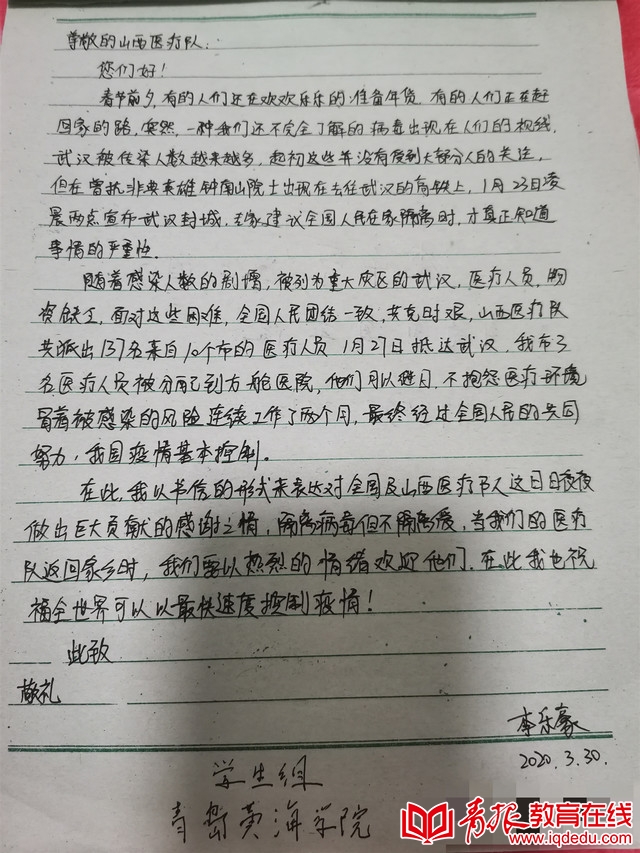 尊敬的山西医疗队:
您们好!
春节前夕,有的人们还在欢欢乐乐的准备年货,有的人们正在赶
回家的路,突然,一种我们还不完全了解的病毒出现在人们的视线,
武汉被传染人数越来越多,起初这些并没有受到大部分人的关注,
但在曾抗非典英雄钟南山院士出现在去往武汉的高铁上,1月23日凌
晨两点宣布武汉封城,国家建议全国人民在家隔离时,才真正知道
事情的严重性。
随着感染人数的剧增,被列为重大灾区的武汉,医疗人员,物
资缺乏,面对这些困难,全国人民团结一致,共克时艰,山西医疗队
共派出137名来自10个市的医疗人员1月27日抵达武汉,我市3
名医疗人员被分配到方舱医院,他们夜以继日,不抱怨医疗环境
冒着被感染的风险连续工作了两个月,最终经过全国人民的共同
努力,我国疫情基本控制。
在此,我以书信的形式来表达对全国及山西医疗队人这日日夜夜
做出巨大贡献的感谢之情,隔离病毒但不隔离爱,当我们的医疗
队返回家乡时,我们要以热烈的情绪欢迎他们,在此我也祝
福全世界可以以最快速度控制疫情!
此致
敬礼
李乐豪
2020.3.30.
学生组
青岛黄海学院
青报教育在线
www.iqdedu.com